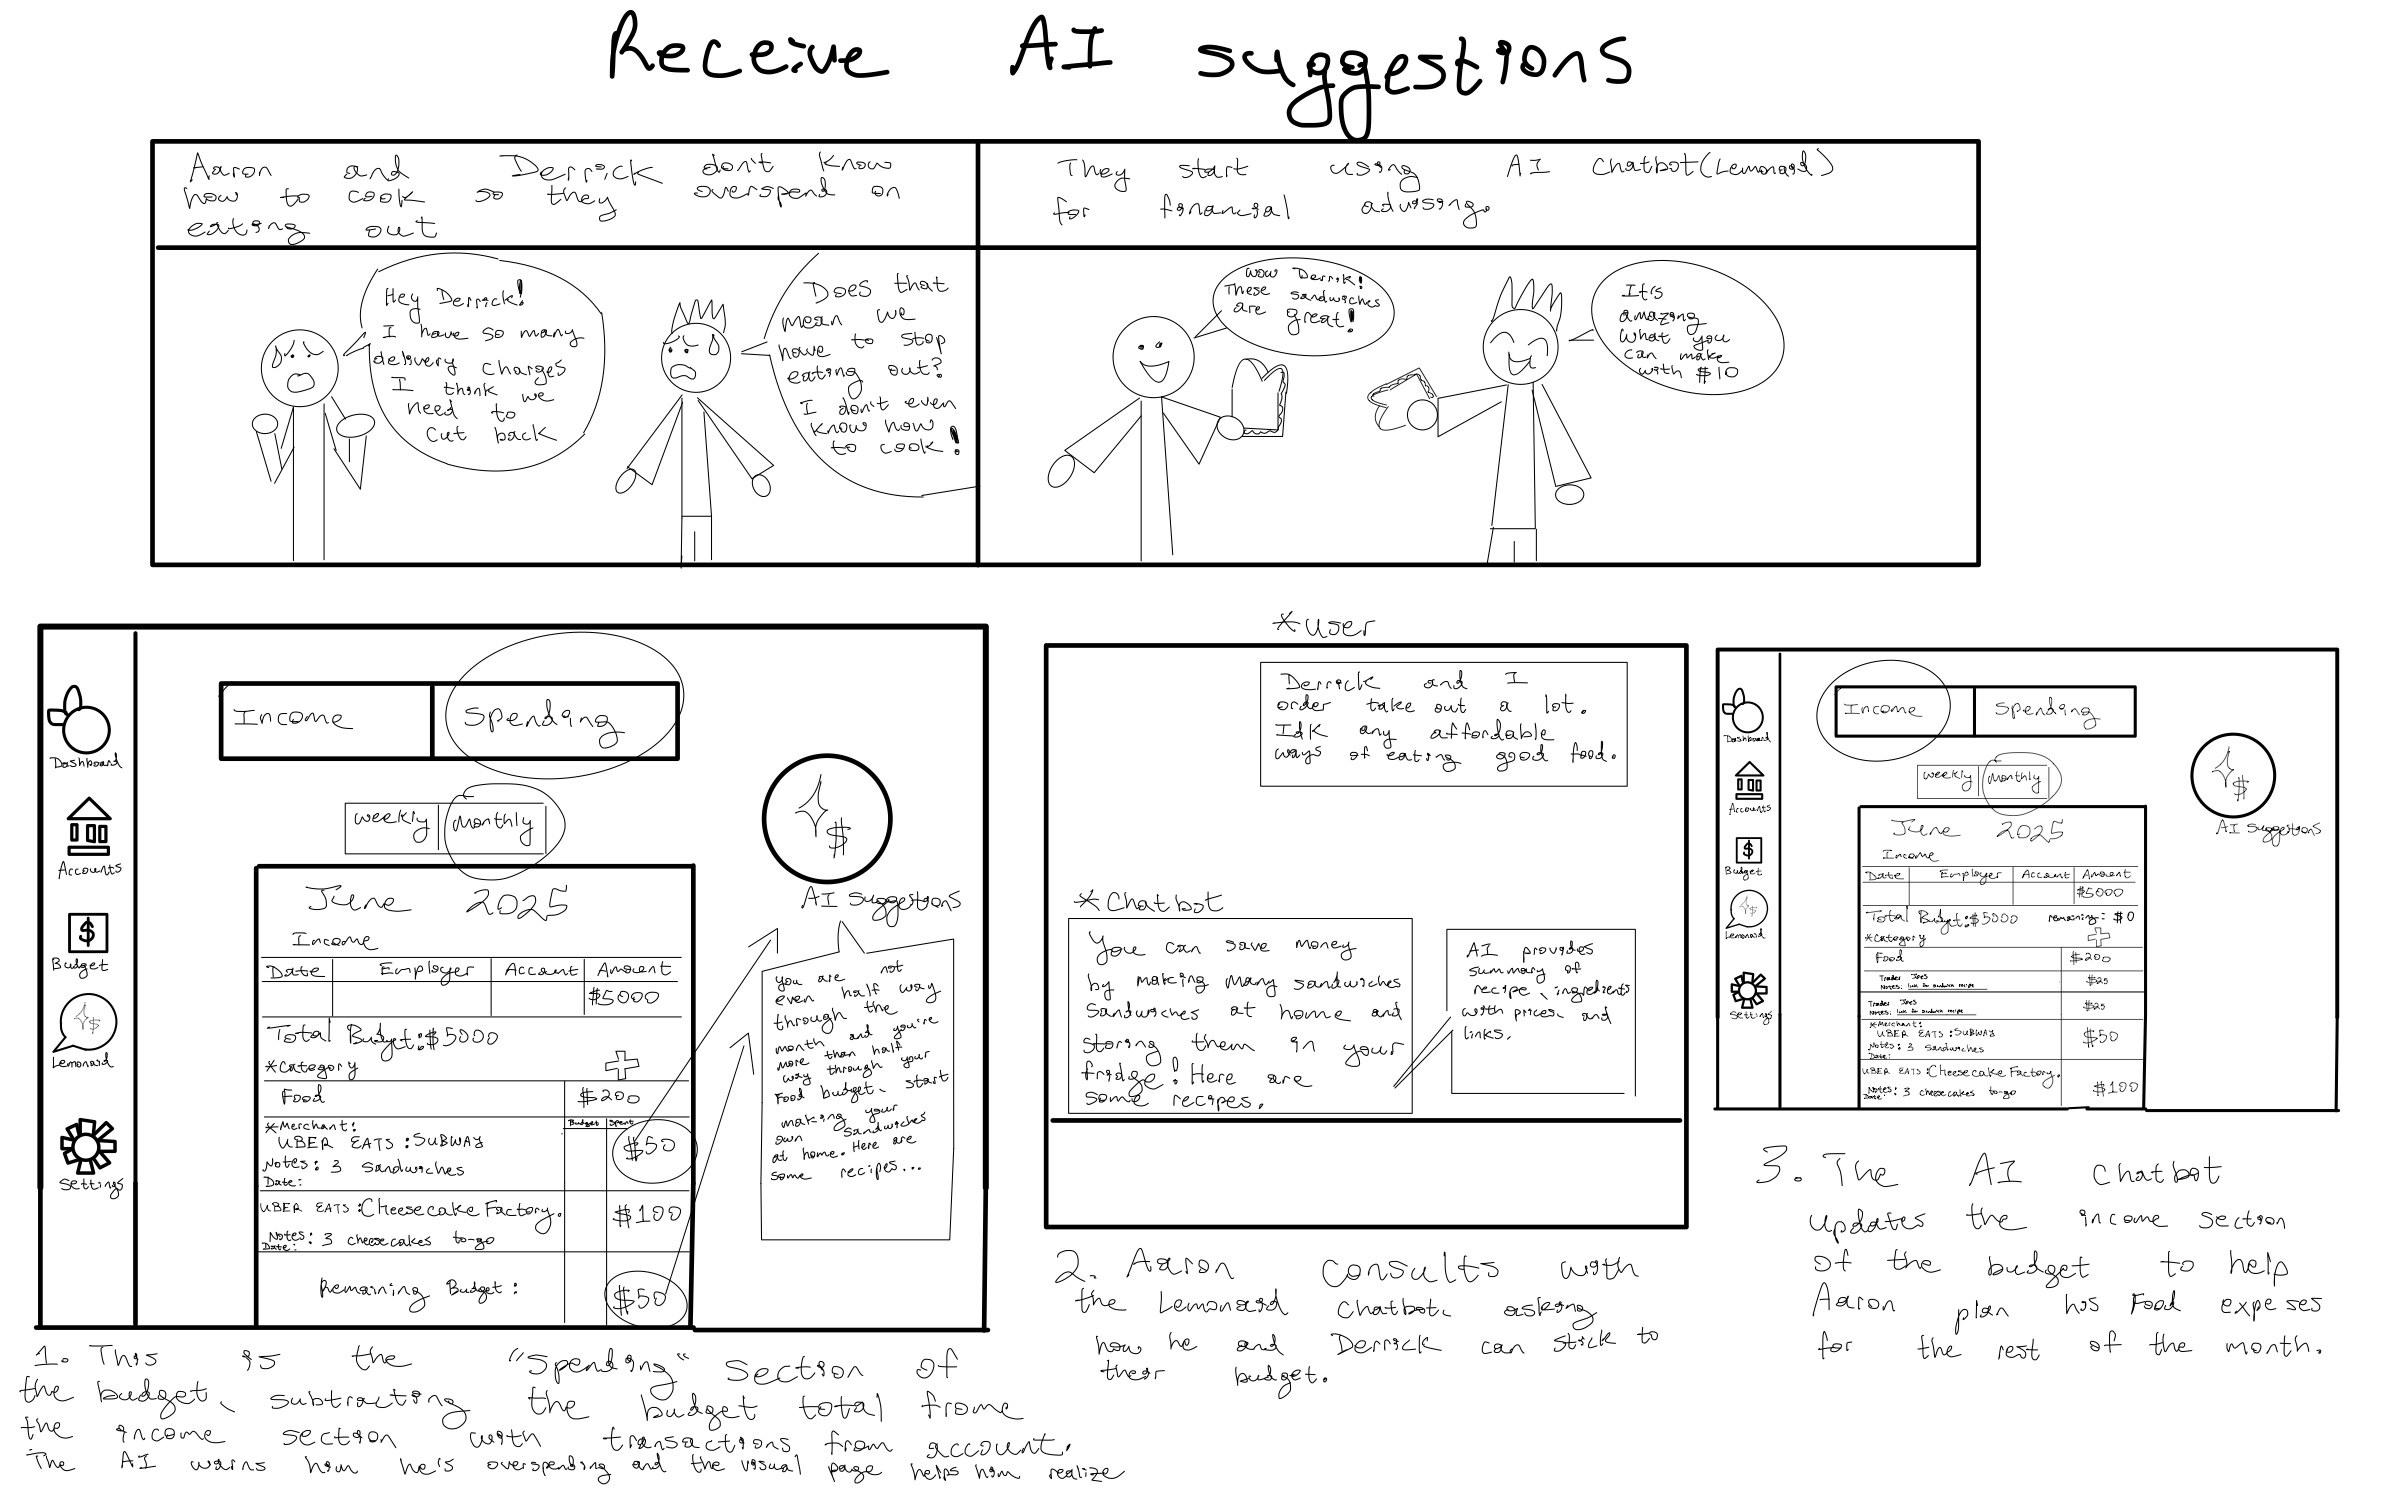 Receive AI suggestions
Aaron and Derrick don't know
how to cook so they overspend on
eating out
They start using AI Chatbot(Lemonaid)
for financial advising.
Hey Derrick!
I have so many
delivery charges
I think we
need to
cut back
Does that
mean we
have to stop
eating out?
I don't even
know how
to cook!
Wow Derrik!
These sandwiches
are great!
It's
amazing
what you
can make
with $10
Dashboard
Accounts
Budget
Lemonaid
Settings
Income Spending
weekly monthly
June 2025
Income
Date Employer Account Amount
$5000
Total Budget:$5000
*Category
Food $200
Budget Spent
*Merchant:
UBER EATS:SUBWAY $50
Notes: 3 Sandwiches
Date:
UBER EATS:Cheesecake Factory. $100
Notes: 3 cheesecakes to-go
Date:
Remaining Budget: $50
$
AI Suggestions
you are not
even half way
through the
month and you're
more than half
way through your
Food budget, start
making your
own sandwiches
at home. Here are
some recipes...
1. This is the "Spending" section of
the budget, subtracting the budget total frome
the income section with transactions from account.
The AI warns him he's overspending and the visual page helps him realize
*user
Derrick and I
order take out a lot.
Idk any affordable
ways of eating good food.
*Chatbot
You can save money
by making many sandwiches
Sandwiches at home and
storing them in your
fridge! Here are
some recipes.
AI provides
summary of
recipe, ingredients
with prices, and
links.
2. Aaron consults with
the Lemonaid Chatbot, asking
how he and Derrick can stick to
their budget.
Dashboard
Accounts
Budget
Lemonaid
Settings
Income Spending
weekly monthly
June 2025
Income
Date Employer Account Amount
$5000
Total Budget:$5000 remaining: $0
*Category
Food $200
Trader Joes $25
Notes: link for sandwich recipe
Trader Joes $25
Notes: link for sandwich recipe
*Merchant:
UBER EATS:SUBWAY $50
Notes: 3 Sandwiches
Date:
UBER EATS:Cheesecake Factory. $100
Notes: 3 cheesecakes to-go
Date:
$
AI Suggestions
3. The AI Chatbot
updates the income section
of the budget to help
Aaron plan his Food expeses
for the rest of the month.